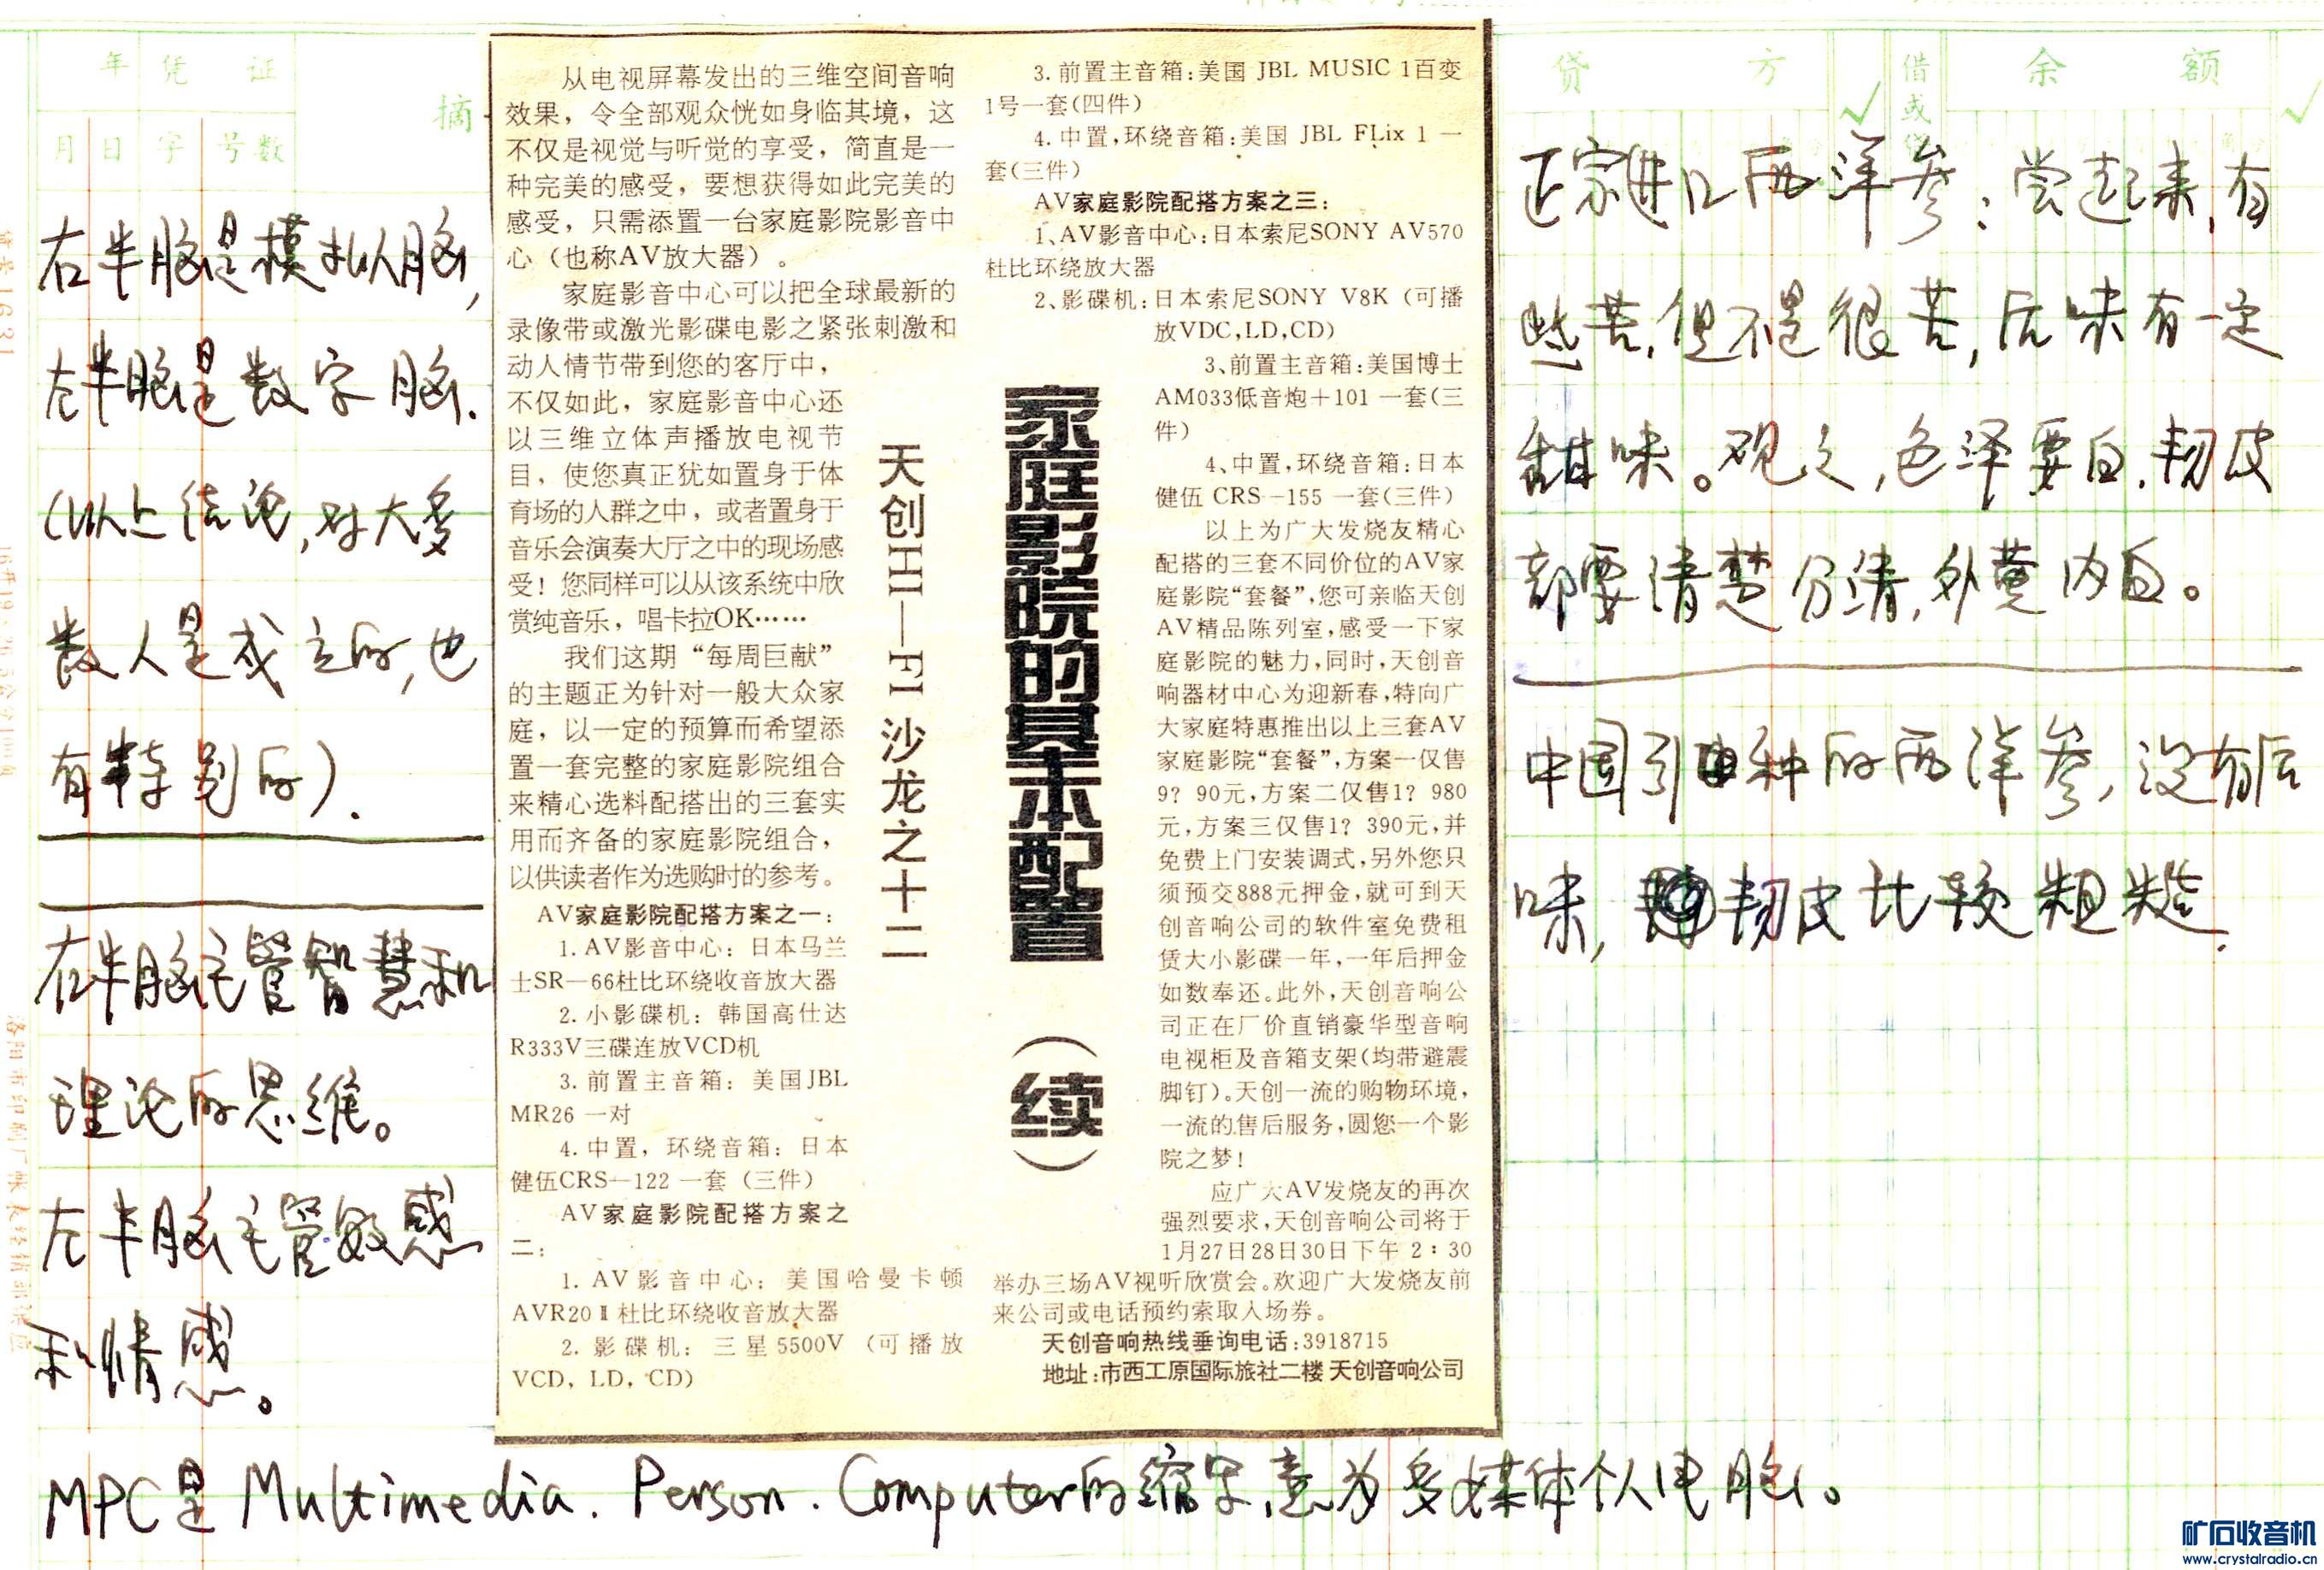 年 凭 证
月 日 字 号 数
摘
右半脑是模拟脑,
左半脑是数字脑.
(以上结论,对大多
数人是成立的,也
有特别的).
右半脑主管智慧和
理论的思维。
左半脑主管敏感
和情感。
从电视屏幕发出的三维空间音响
效果，令全部观众恍如身临其境，这
不仅是视觉与听觉的享受，简直是一
种完美的感受，要想获得如此完美的
感受，只需添置一台家庭影院影音中
心（也称AV放大器）。
家庭影音中心可以把全球最新的
录像带或激光影碟电影之紧张刺激和
动人情节带到您的客厅中，
不仅如此，家庭影音中心还
以三维立体声播放电视节
目，使您真正犹如置身于体
育场的人群之中，或者置身于
音乐会演奏大厅之中的现场感
受！您同样可以从该系统中欣
赏纯音乐，唱卡拉OK……
我们这期“每周巨献”
的主题正为针对一般大众家
庭，以一定的预算而希望添
置一套完整的家庭影院组合
来精心选料配搭出的三套实
用而齐备的家庭影院组合，
以供读者作为选购时的参考。
AV家庭影院配搭方案之一：
1. AV影音中心：日本马兰
士SR—66杜比环绕收音放大器
2. 小影碟机：韩国高仕达
R333V三碟连放VCD机
3. 前置主音箱：美国JBL
MR26 一对
4. 中置，环绕音箱：日本
健伍CRS—122 一套（三件）
AV家庭影院配搭方案之
二：
1. AV影音中心：美国哈曼卡顿
AVR20Ⅱ杜比环绕收音放大器
2. 影碟机：三星5500V（可播放
VCD，LD，CD）
天创HI—FI沙龙之十二
家庭影院的基本配置（续）
3.前置主音箱:美国 JBL MUSIC 1百变
1号一套(四件)
4.中置,环绕音箱:美国 JBL FLix 1 一
套(三件)
AV家庭影院配搭方案之三:
1、AV影音中心:日本索尼SONY AV570
杜比环绕放大器
2、影碟机:日本索尼SONY V8K (可播
放VDC,LD,CD)
3、前置主音箱:美国博士
AM033低音炮+101 一套(三
件)
4、中置,环绕音箱:日本
健伍 CRS-155 一套(三件)
以上为广大发烧友精心
配搭的三套不同价位的AV家
庭影院“套餐”,您可亲临天创
AV精品陈列室,感受一下家
庭影院的魅力,同时,天创音
响器材中心为迎新春,特向广
大家庭特惠推出以上三套AV
家庭影院“套餐”,方案一仅售
9? 90元,方案二仅售1? 980
元,方案三仅售1? 390元,并
免费上门安装调式,另外您只
须预交888元押金,就可到天
创音响公司的软件室免费租
赁大小影碟一年,一年后押金
如数奉还。此外,天创音响公
司正在厂价直销豪华型音响
电视柜及音箱支架(均带避震
脚钉)。天创一流的购物环境,
一流的售后服务,圆您一个影
院之梦!
应广大AV发烧友的再次
强烈要求,天创音响公司将于
1月27日28日30日下午 2:30
举办三场AV视听欣赏会。欢迎广大发烧友前
来公司或电话预约索取入场券。
天创音响热线垂询电话:3918715
地址:市西工原国际旅社二楼 天创音响公司
贷 方 借或贷 余 额
正宗进口西洋参:尝起来,有
些苦,但不是很苦,后味有一定
甜味。观之,色泽要白.韧皮
部要清楚分清,外黄内白。
中国引种的西洋参,没有后
味,韧皮比较粗糙.
MPC是Multimedia. Person. Computer的缩写,意为多媒体个人电脑。
矿石收音机
www.crystalradio.cn